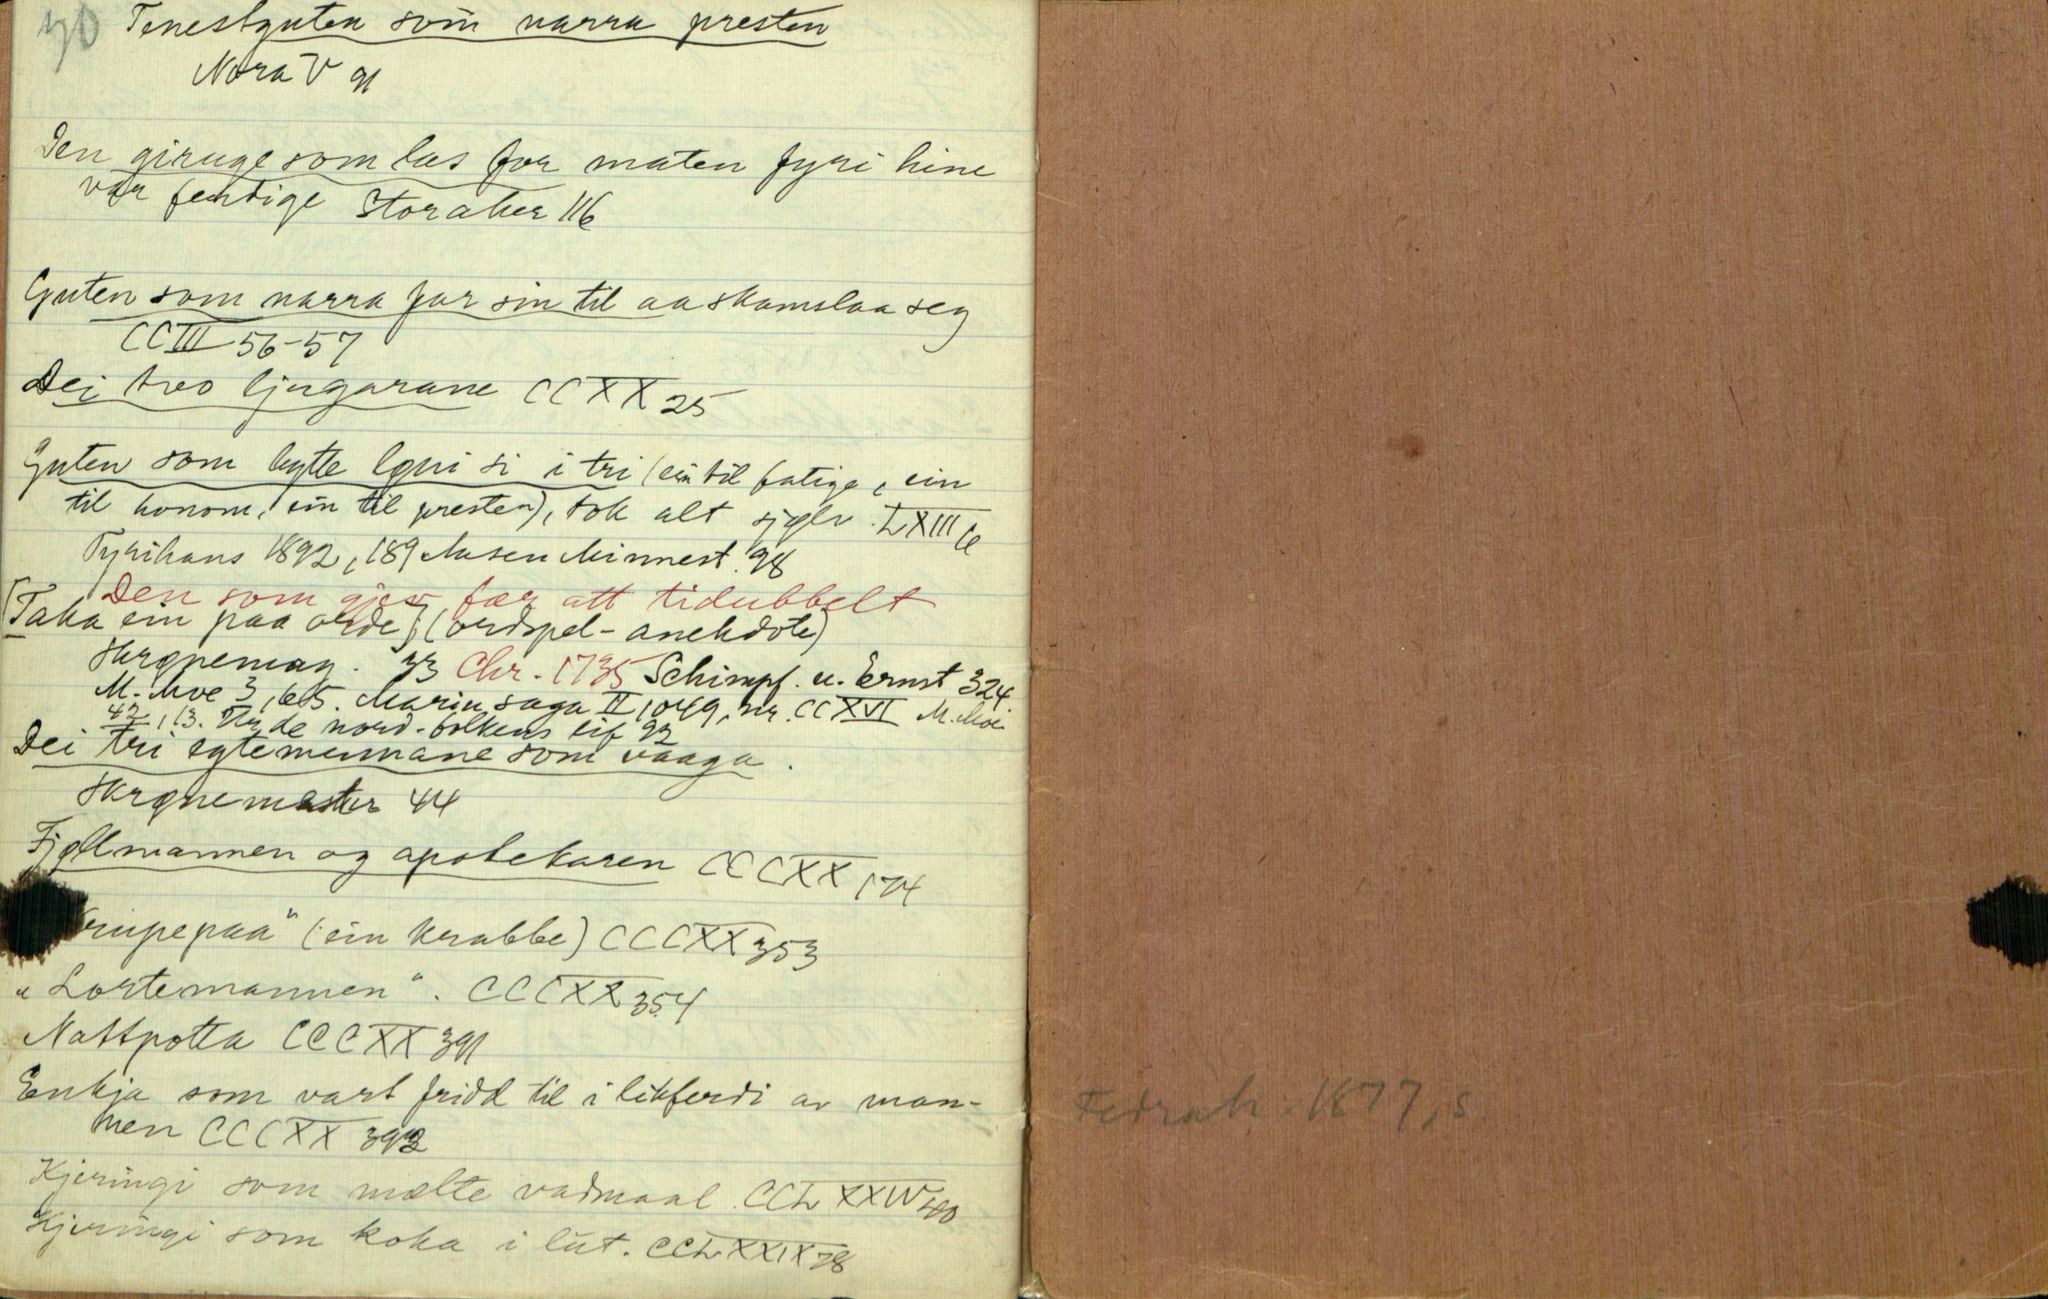 70 Tenestguten som narra presten
Nora V 91
Den giruge som las for maten fyri hine
var ferdige Storaker 116
Guten som narra far sin til aa skamslaa seg
CCIII 56-57
Dei tvo ljugarane CCXX 25
Guten som bytte løni si i tri (ein til fatige, ein
til honom, ein til presten), tok alt sjølv. LXIII 6
Tyrihans 1892, 189 Aasen Minnest. 98
Den som gjev fær att tidubbelt
[Taka ein paa orde] (ordspel-anekdote)
Skrønemag. 33 Chr. 1735 Schimpf. u. Ernst 324
M. Moe 3, 65. Mariu saga II, 1049, nr. CCXVI M. Moe
42, 13. nord. folkens lif 92
Dei tri egtemennane som vaaga.
Skrønemester 44
Fjøllmannen og apotekaren CCCXX 174
paa" (ein krabbe) CCCXX 353
"Lortemannen". CCCXX 354
Nattpotta CCCXX 391
Enkja som vart fridd til i likferdi av man-
nen CCCXX 392
Kjeringi som mælte vadmaal. CCLXXIV 40
Kjeringi som koka i lut. CCLXXIX 78
1877, s